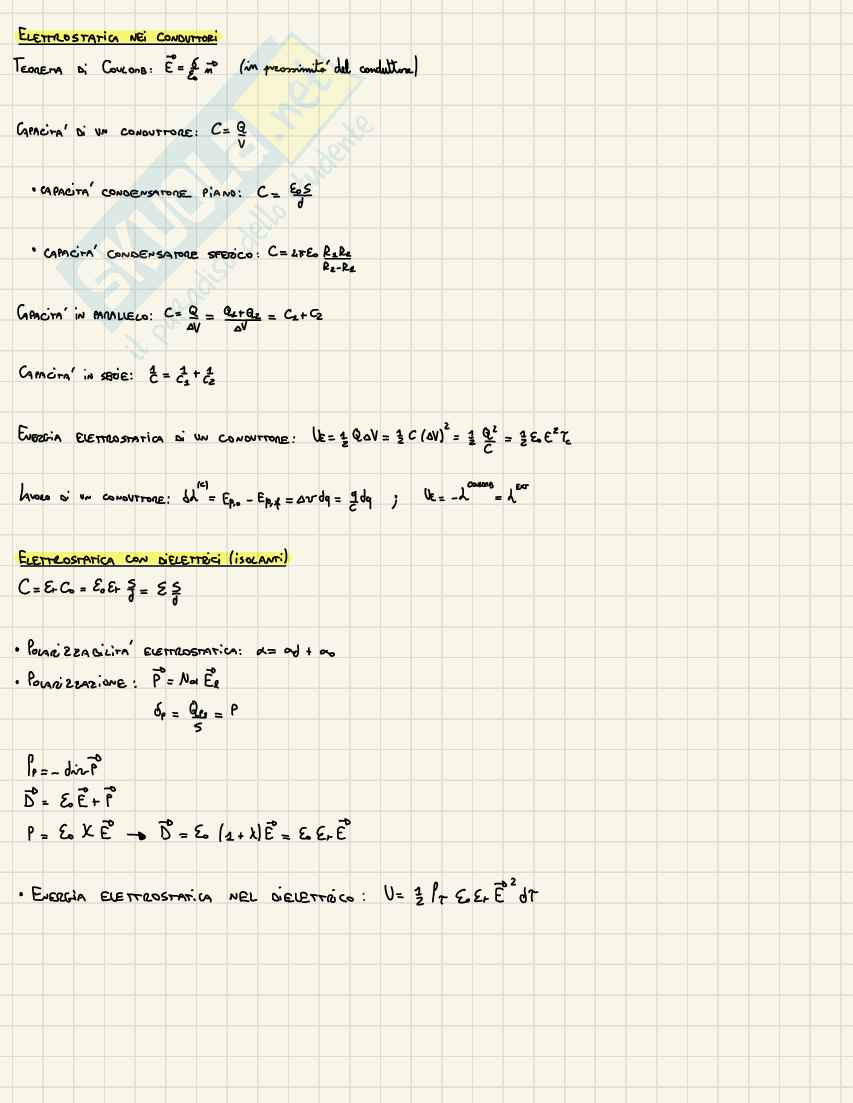 ELETTROSTATICA NEI CONDUTTORI
TEOREMA DI COULOMB: E⃗ = σ/ε₀ n⃗ (in prossimità del conduttore)
CAPACITA' DI UN CONDUTTORE: C = Q/V
• CAPACITA' CONDENSATORE PIANO: C = ε₀S/d
• CAPACITA' CONDENSATORE SFERICO: C = 4πε₀ R₁R₂/(R₂-R₁)
CAPACITA' IN PARALLELO: C = Q/ΔV = (Q₁+Q₂)/ΔV = C₁+C₂
CAPACITA' IN SERIE: 1/C = 1/C₁ + 1/C₂
ENERGIA ELETTROSTATICA DI UN CONDUTTORE: UE = 1/2 QΔV = 1/2 C(ΔV)² = 1/2 Q²/C = 1/2 ε₀E²τc
LAVORO DI UN CONDUTTORE: δL^(C) = Ep,o - Ep,f = ΔV dq = q/C dq ; UE = -L = L^EXT
ELETTROSTATICA CON DIELETTRICI (ISOLANTI)
C = εrC₀ = ε₀εr S/d = ε S/d
• POLARIZZABILITA' ELETTROSTATICA: α = αd + α₀
• POLARIZZAZIONE: P⃗ = Nα E⃗l
σp = Qp/S = P
ρp = - div P⃗
D⃗ = ε₀E⃗ + P⃗
P = ε₀ χ E⃗ → D⃗ = ε₀(1+χ)E⃗ = ε₀εrE⃗
• ENERGIA ELETTROSTATICA NEL DIELETTRICO: U = 1/2 ∫τ ε₀εr E⃗² dτ
SKUOLA.net
il paradiso dello studente